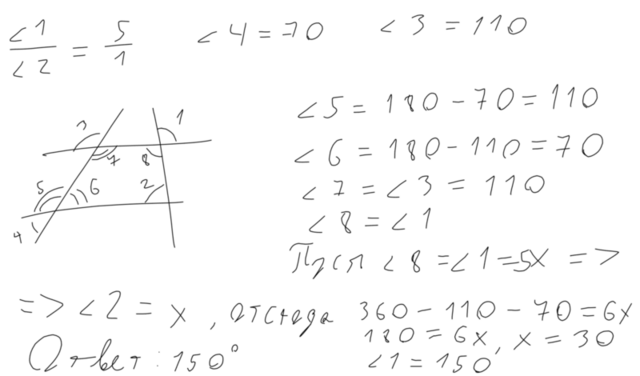 ∠1/∠2 = 5/1 ∠4 = 70 ∠3 = 110
3 1
7 8
5 6 2
4
∠5 = 180 - 70 = 110
∠6 = 180 - 110 = 70
∠7 = ∠3 = 110
∠8 = ∠1
Пусть ∠8 = ∠1 = 5x =>
=> ∠2 = x, отсюда 360 - 110 - 70 = 6x
180 = 6x, x = 30
∠1 = 150
Ответ: 150°